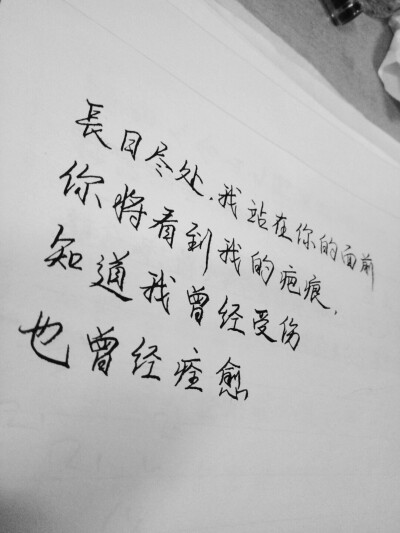 長日尽处,我站在你的面前
你将看到我的疤痕,
知道我曾经受伤
也曾经痊愈